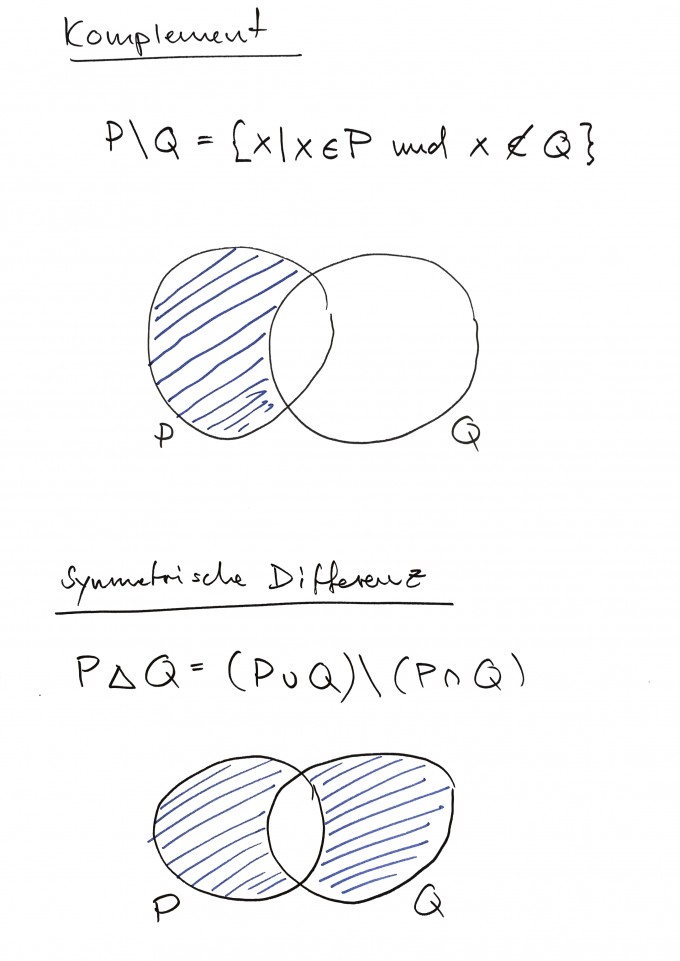 Komplement
P\Q = {x|x∈P und x ∉ Q}
P Q
Symmetrische Differenz
P△Q = (P∪Q)\(P∩Q)
P Q